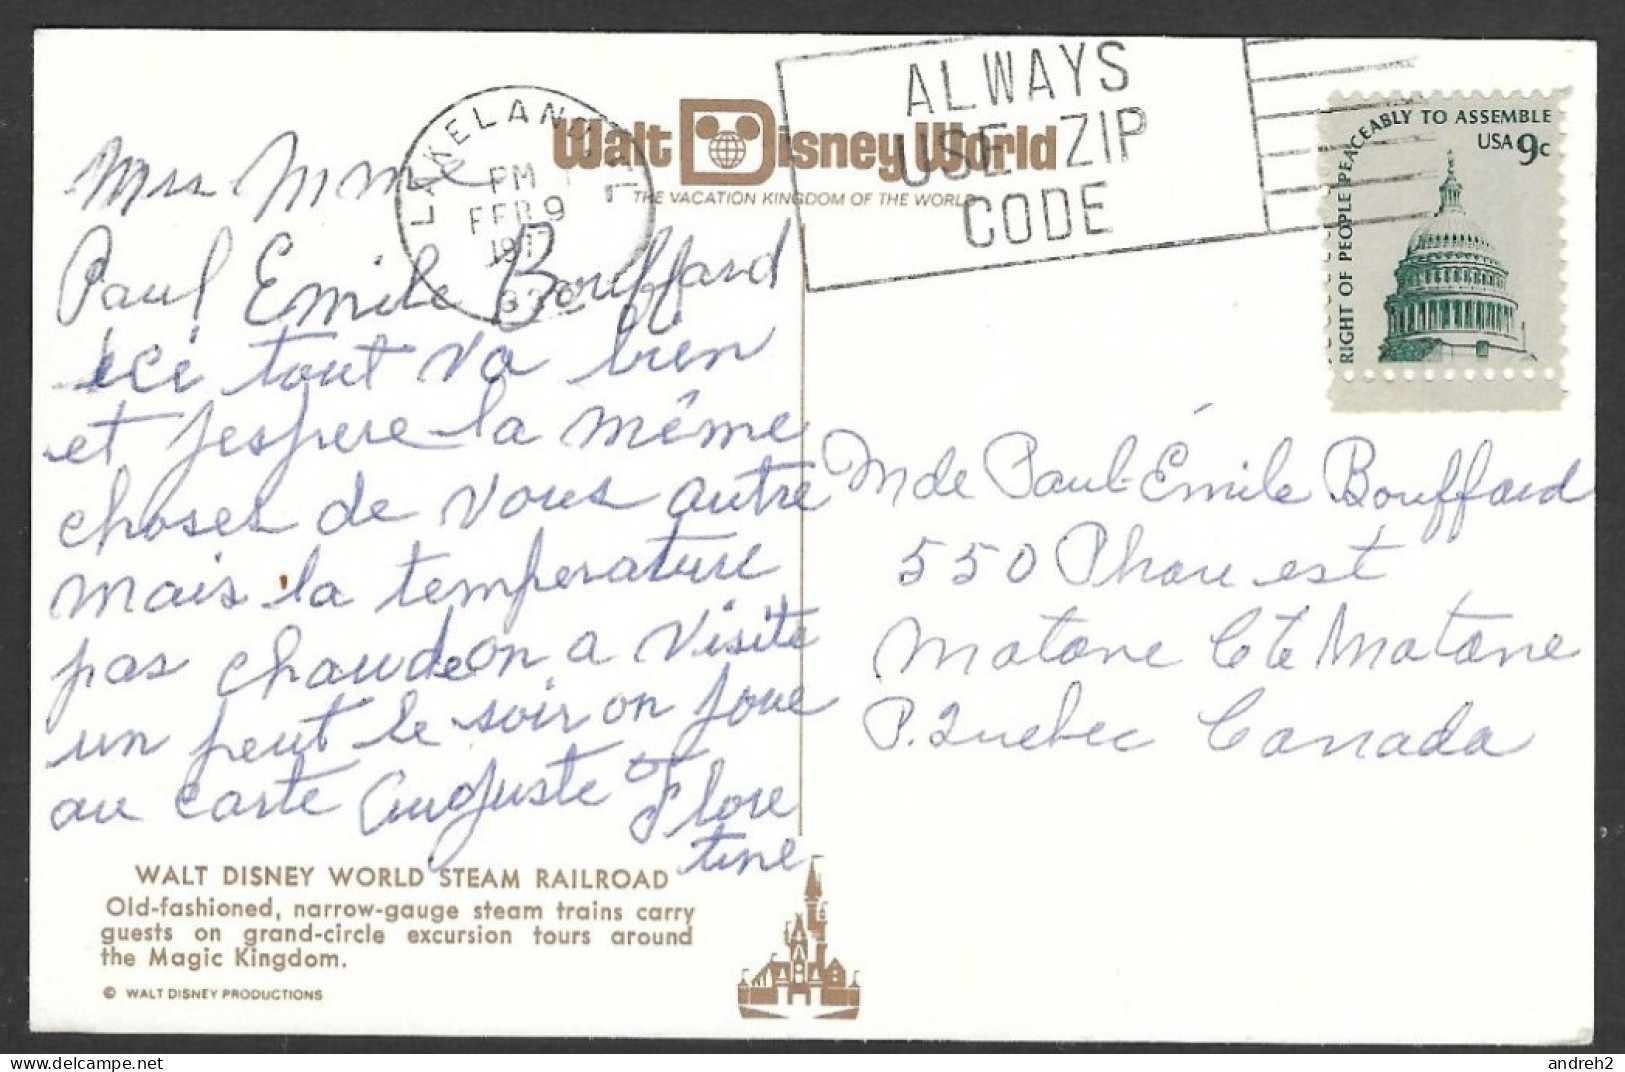 Walt Disney World
THE VACATION KINGDOM OF THE WORLD
LAKELAND, FL
PM
FEB 9
1977
ALWAYS
USE ZIP
CODE
RIGHT OF PEOPLE PEACEABLY TO ASSEMBLE
USA 9c
Mme
Paul Emile Bouffard
ici tout va bien
et j'espere la même
choses de vous autre
mais la temperature
pas chaude on a visite
un peut le soir on joue
au carte Auguste et Flore
tine
Mde Paul-Émile Bouffard
550 Phare est
Matane Cte Matane
P. Quebec Canada
WALT DISNEY WORLD STEAM RAILROAD
Old-fashioned, narrow-gauge steam trains carry
guests on grand-circle excursion tours around
the Magic Kingdom.
© WALT DISNEY PRODUCTIONS
www.delcampe.net
andreh2